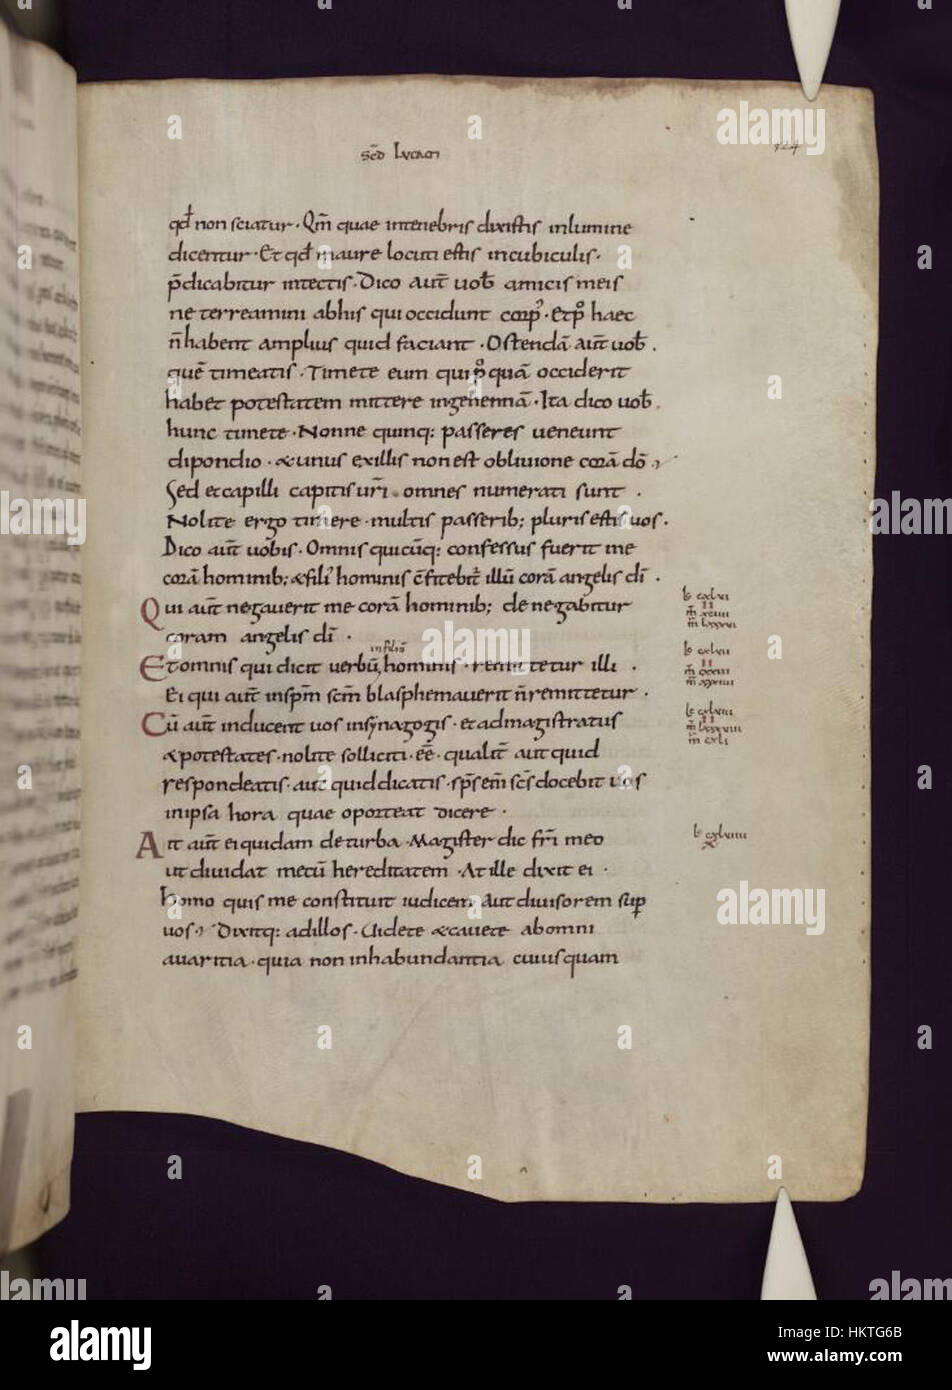 scd Lucam
124
qd̄ non sciatur · Qm̄ quae intenebris dixistis inlumine
dicentur · Et qd̄ inaure locuti estis incubiculis ·
p̄dicabitur intectis · Dico aut̄ uob̄ amicis meis
ne terreamini abhis qui occidunt corp᾽ · Et pꝰ haec
n̄ habent amplius quid faciant · Ostendā aut̄ uob̄ .
quē timeatis · Timete eum qui pꝰ quā occiderit
habet potestatem mittere ingehennā · Ita dico uob̄ .
hunc timete · Nonne quinq: passeres ueneunt
dipondio · & unus exillis non est obliuione corā dō
Sed et capilli capitis ur̄i omnes numerati sunt ·
Nolite ergo timere · multis passerib; pluris estis uos .
Dico aut̄ uobis · Omnis quicūq: confessus fuerit me
corā hominib; & fili᾽ hominis c̄fitebit᾽ illū corā angelis dī ·
Qui aut̄ negauerit me corā hominib; denegabitur
coram angelis dī ·
in filiū
Et omnis qui dicit uerbū, hominis · remittetur illi ·
Ei qui aut̄ in spm̄ scm̄ blasphemauerit n̄ remittetur ·
Cū aut̄ inducent uos insynagogis · et ad magistratus
& potestates · nolite solliciti · eē · qualit̄ aut quid
respondeatis · aut quid dicatis · sp̄s em̄ sc̄s docebit uos
inipsa hora quae oporteat dicere ·
Ait aut̄ ei quidam deturba · Magister dic fr̄i meo
ut diuidat mecū hereditatem · At ille dixit ei ·
homo quis me constituit iudicem aut diuisorem sup̄
uos · Dixitq: adillos · Uidete & cauete abomni
auaritia · quia non inhabundantia cuiusquam
alamy
alamy
Image ID: HKTG6B
www.alamy.com